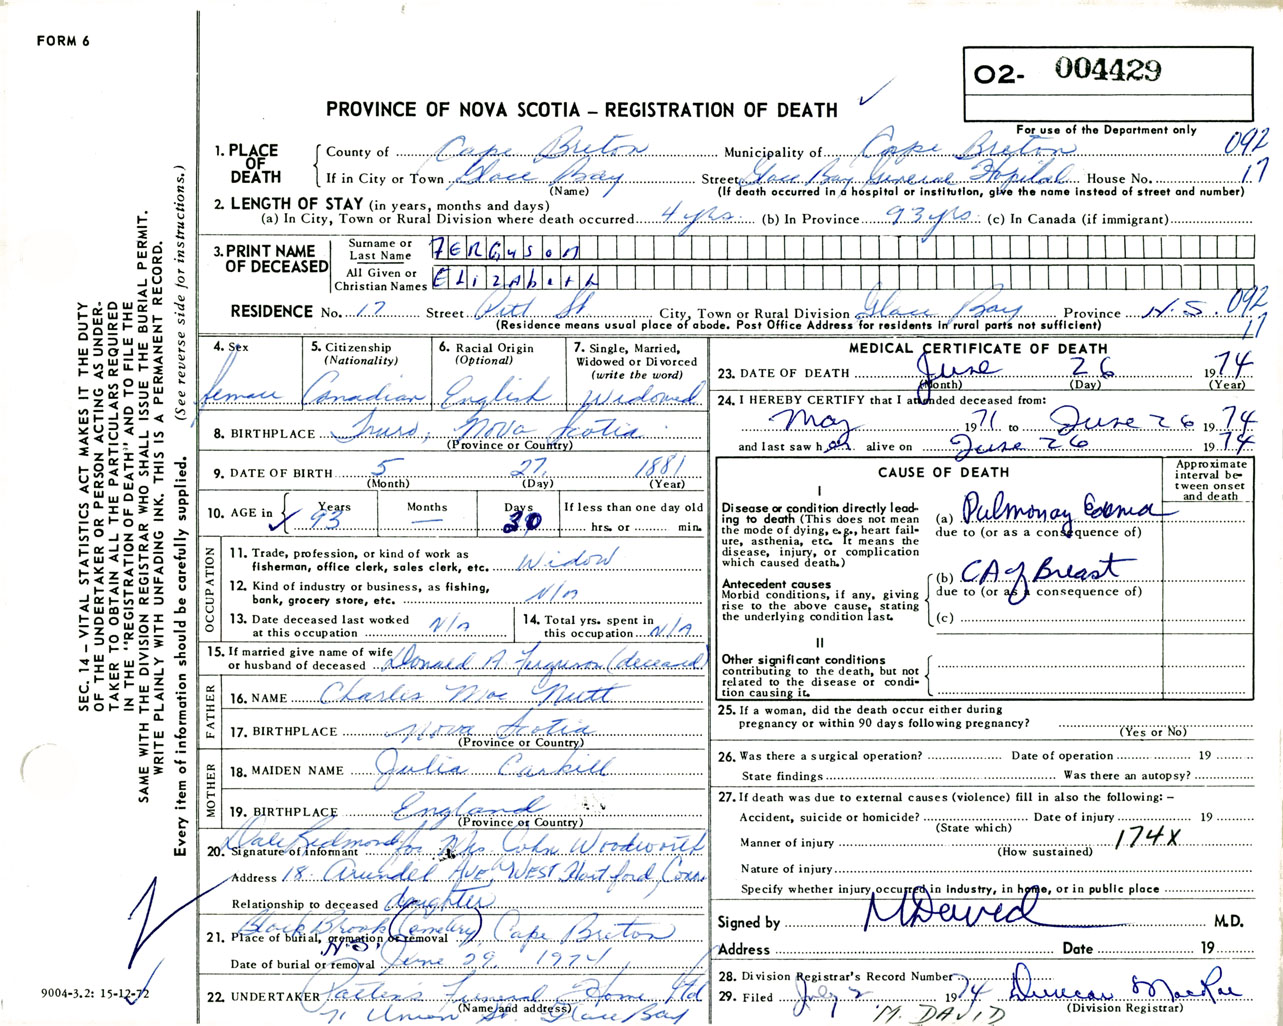 FORM 6
O2- 004429
PROVINCE OF NOVA SCOTIA – REGISTRATION OF DEATH ✓
For use of the Department only
1. PLACE OF DEATH
County of Cape Breton Municipality of Cape Breton 092
If in City or Town Glace Bay Street Glace Bay General Hospital House No. 17
(Name) (If death occurred in a hospital or institution, give the name instead of street and number)
2. LENGTH OF STAY (in years, months and days)
(a) In City, Town or Rural Division where death occurred 4 yrs. (b) In Province 93 yrs. (c) In Canada (if immigrant)
3. PRINT NAME OF DECEASED
Surname or Last Name FERGUSON
All Given or Christian Names ELizAbeth
RESIDENCE No. 17 Street Pitt St City, Town or Rural Division Glace Bay Province N.S. 092
(Residence means usual place of abode. Post Office Address for residents in rural parts not sufficient) 17
4. Sex female
5. Citizenship (Nationality) Canadian
6. Racial Origin (Optional) English
7. Single, Married, Widowed or Divorced (write the word) Widowed
8. BIRTHPLACE Truro, Nova Scotia
(Province or Country)
9. DATE OF BIRTH 5 27 1881
(Month) (Day) (Year)
10. AGE in ✓ Years 93 Months — Days 30 If less than one day old
hrs. or min.
OCCUPATION
11. Trade, profession, or kind of work as fisherman, office clerk, sales clerk, etc. Widow
12. Kind of industry or business, as fishing, bank, grocery store, etc. N/A
13. Date deceased last worked at this occupation N/A
14. Total yrs. spent in this occupation N/A
15. If married give name of wife or husband of deceased Donald A. Ferguson (deceased)
FATHER
16. NAME Charles Mac Nutt
17. BIRTHPLACE Nova Scotia
(Province or Country)
MOTHER
18. MAIDEN NAME Julia
19. BIRTHPLACE England
(Province or Country)
Dale Redmond for Mrs. John Woodworth
20. Signature of informant
Address 18 Arundel Ave, West Hartford, Conn.
Relationship to deceased daughter
Black Brook (Cemetery) Cape Breton
21. Place of burial, cremation or removal N.S.
Date of burial or removal June 29, 1974
22. UNDERTAKER Patten's Funeral Home Ltd
(Name and address)
71 Union St. Glace Bay
MEDICAL CERTIFICATE OF DEATH
23. DATE OF DEATH June 26 1974
(Month) (Day) (Year)
24. I HEREBY CERTIFY that I attended deceased from:
May 1971 to June 26 1974
and last saw her alive on June 26 1974
CAUSE OF DEATH
Approximate interval between onset and death
I
Disease or condition directly leading to death (This does not mean the mode of dying, e.g., heart failure, asthenia, etc. It means the disease, injury, or complication which caused death.)
(a) Pulmonay Edema
due to (or as a consequence of)
Antecedent causes
Morbid conditions, if any, giving rise to the above cause, stating the underlying condition last.
(b) CA of Breast
due to (or as a consequence of)
(c)
II
Other significant conditions contributing to the death, but not related to the disease or condition causing it.
25. If a woman, did the death occur either during pregnancy or within 90 days following pregnancy?
(Yes or No)
26. Was there a surgical operation? Date of operation 19
State findings Was there an autopsy?
27. If death was due to external causes (violence) fill in also the following: –
Accident, suicide or homicide? Date of injury 19
(State which)
Manner of injury 174X
(How sustained)
Nature of injury
Specify whether injury occurred in Industry, in home, or in public place
Signed by M David M.D.
Address Date 19
28. Division Registrar's Record Number
29. Filed July 2 1974 Duncan MacRae
(Division Registrar)
"M. DAVID
SEC. 14 – VITAL STATISTICS ACT MAKES IT THE DUTY
OF THE UNDERTAKER OR PERSON ACTING AS UNDER-
TAKER TO OBTAIN ALL THE PARTICULARS REQUIRED
IN THE "REGISTRATION OF DEATH" AND TO FILE THE
SAME WITH THE DIVISION REGISTRAR WHO SHALL ISSUE THE BURIAL PERMIT.
WRITE PLAINLY WITH UNFADING INK. THIS IS A PERMANENT RECORD.
Every item of information should be carefully supplied. (See reverse side for instructions.)
9004-3.2: 15-12-72